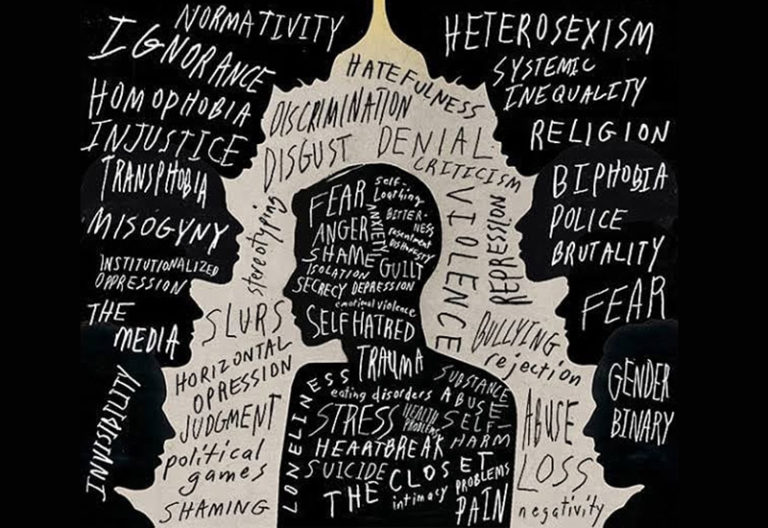 NORMATIVITY
IGNORANCE
HOMOPHOBIA
INJUSTICE
TRANSPHOBIA
MISOGYNY
INSTITUTIONALIZED
OPRESSION
THE
MEDIA
INVISIBILITY
HATEFULNESS
DISCRIMINATION
DISGUST
DENIAL
CRITICISM
stereotyping
VIOLENCE
REPRESSION
SLURS
HORIZONTAL
OPRESSION
JUDGMENT
political
games
SHAMING
FEAR
self-
Loathing
ANXIETY
BITTER-
NESS
resentment
DISHONESTY
ANGER
SHAME
GUILT
ISOLATION
SECRECY DEPRESSION
emotional violence
SELF HATRED
TRAUMA
LONELINESS
eating disorders
SUBSTANCE
ABUSE
STRESS
HEALTH
PROBLEMS
SELF-
HARM
HEARTBREAK
SUICIDE
THE CLOSET
intimacy
PROBLEMS
PAIN
BULLYING
rejection
ABUSE
LOSS
negativity
HETEROSEXISM
SYSTEMIC
INEQUALITY
RELIGION
BIPHOBIA
POLICE
BRUTALITY
FEAR
GENDER
BINARY